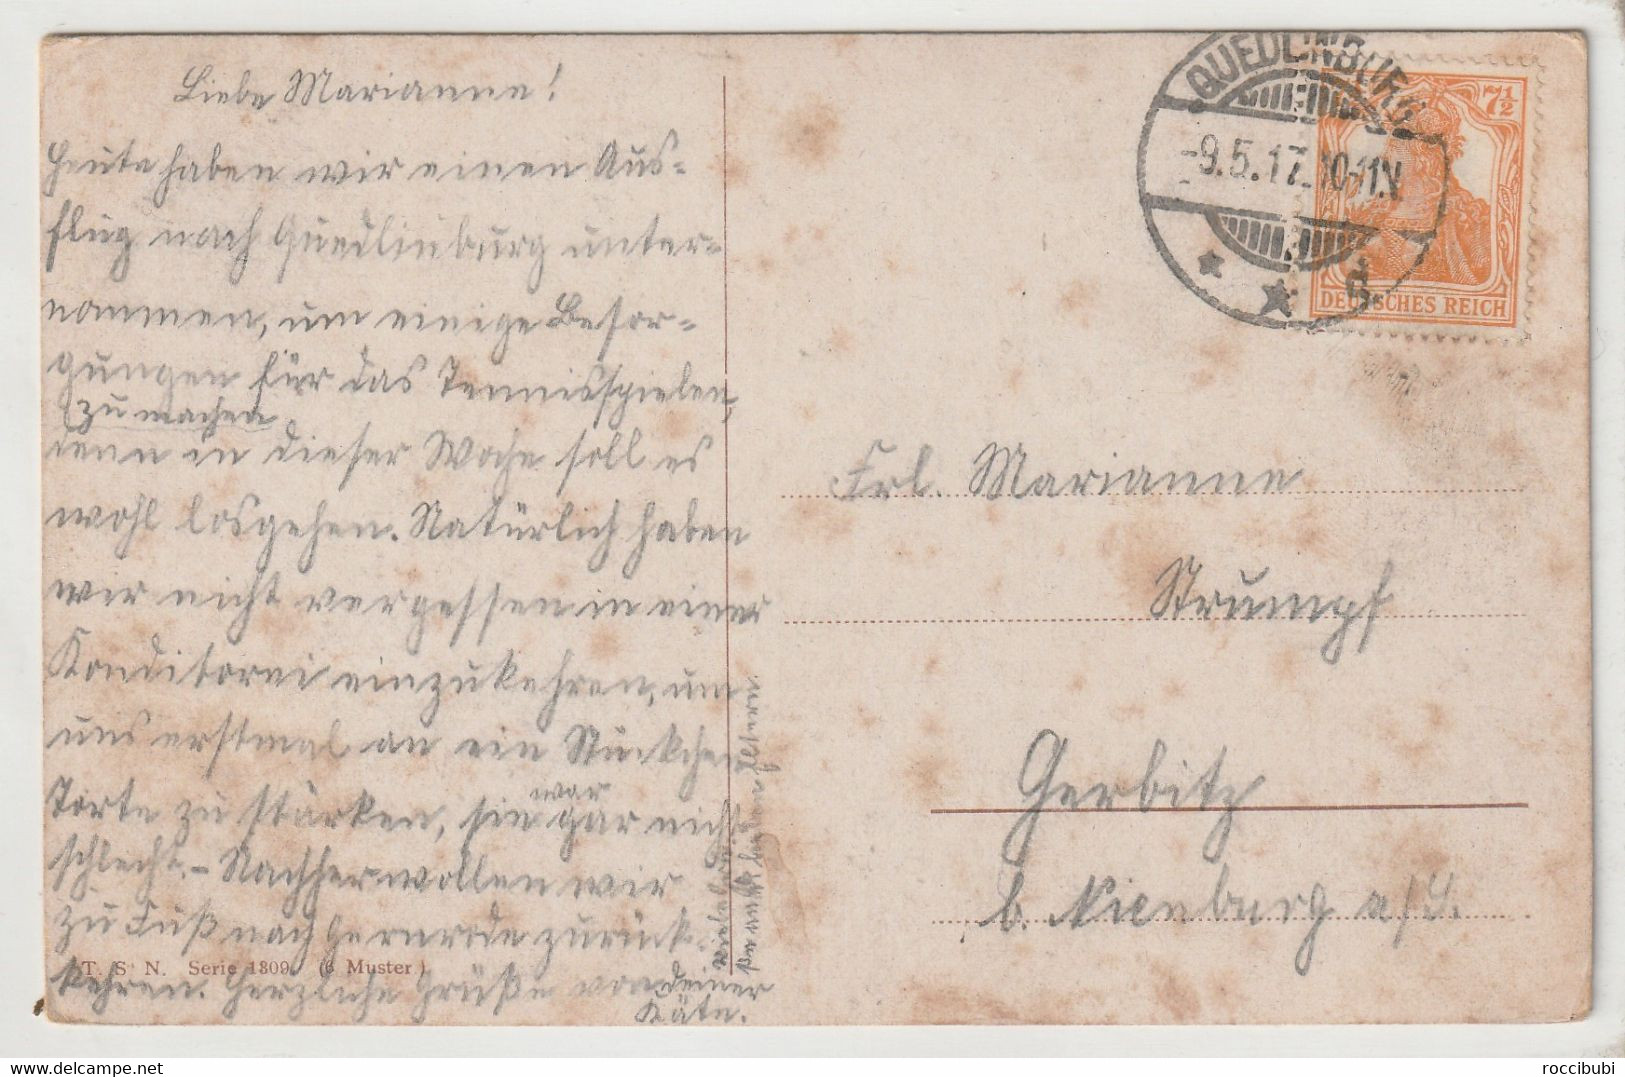 Liebe Marianne!
Heute haben wir einen Aus-
flug nach Quedlinburg unter-
nommen, um einige Besor-
gungen für das Tennisspielen,
zu machen
denn in dieser Woche soll es
wohl losgehen. Natürlich haben
wir nicht vergessen in einer
Konditorei einzukehren, um
uns erstmal an ein Stückchen
Torte zu stärken, sie war gar nicht
schlecht. – Nachher wollen wir
zu Fuß nach Gernrode zurück-
kehren. Herzliche Grüße von deiner
Käte.
T. S. N. Serie 1809 (6 Muster)
QUEDLINBURG
-9.5.17.10-11.V
* * d
7½
DEUTSCHES REICH
Frl. Marianne
Strumpf
Gerbitz
b. Nienburg a/S.
roccibubi